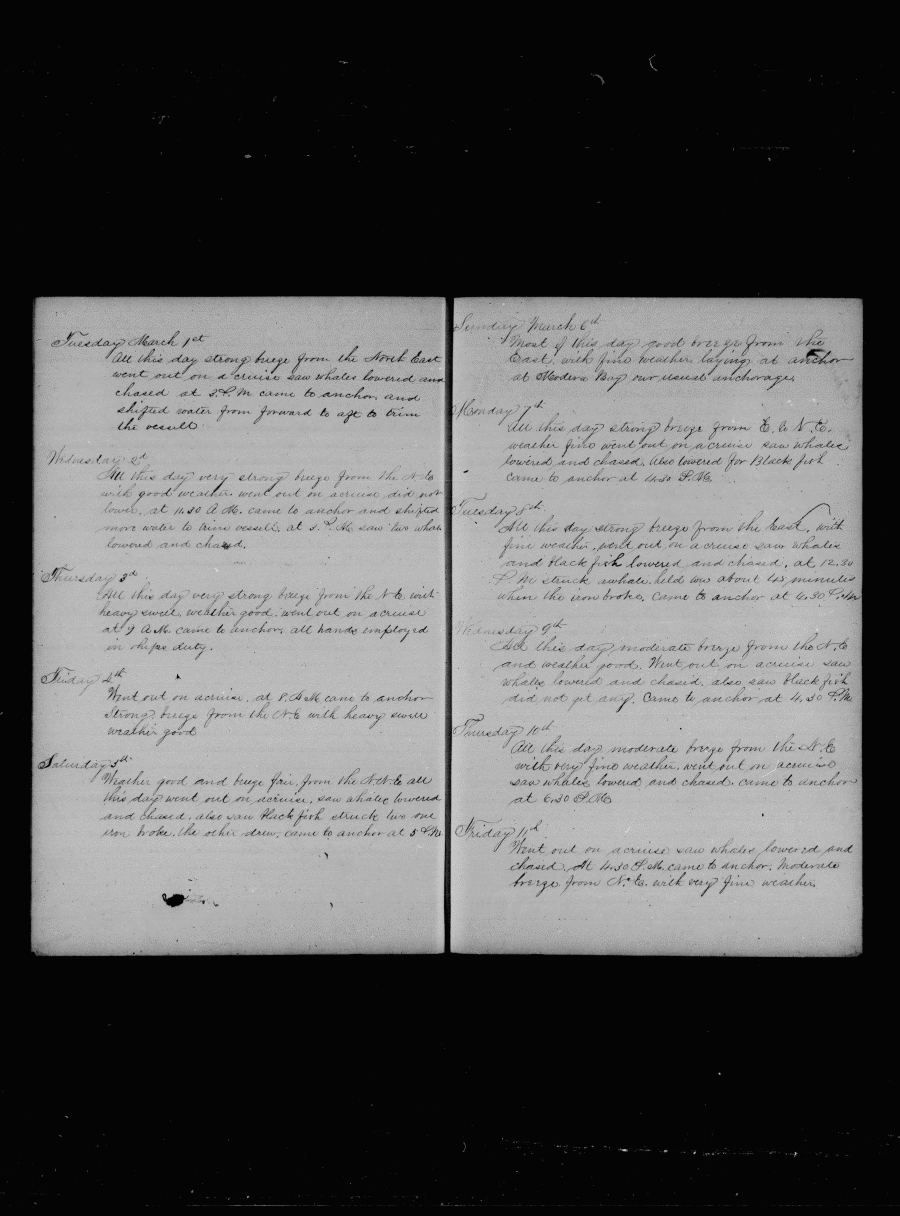 Tuesday March 1st
All this day strong breeze from the North East
went out on a cruise saw whales lowered and
chased at 3. P.M came to anchor and
shifted water from forward to aft to trim
the vessell
Wednesday 2d
All this day very strong breeze from the N.E
with good weather went out on acruise did not
lower. at 11.30 A.M. came to anchor and shifted
more water to trim vessell. at 3. P. M. saw two whales
lowered and chased.
Thursday 3d
All this day very strong breeze from the N.E. with
heavy swell, weather good. went out on acruise
at 9 A.M. came to anchor. all hands employed
in ships duty.
Friday 4th
Went out on acruise, at came to anchor
Strong breeze from the N.E with heavy swell
weather good
Saturday 5th
Weather good and breeze fair, from the N.N.E all
this day went out on acruise, saw whales lowered
and chased. also saw black fish struck two one
iron broke. the other drew. came to anchor at 5 P.M.
Sunday March 6th
Most of this day good breeze from the
East. with fine weather laying at anchor
at Modera Bay our usual anchorage.
Monday 7th
All this day strong breeze from E. & N.E.
weather fine went out on a cruise saw whales
lowered and chased. Also lowered for Black fish
came to anchor at 4.30 P.M.
Tuesday 8th
All this day strong breeze from the East. with
fine weather, went out on a cruise saw whales
and black fish lowered and chased. at 12.30
P.M. struck awhale. held on about 45 minutes
when the iron broke, came to anchor at 4.30 P.M
Wednesday 9th
All this day moderate breeze from the N.E
and weather good. Went out on acruise saw
whales lowered and chased. also saw black fish
did not get any. Came to anchor at 4.30 P.M.
Thursday 10th
All this day moderate breeze from the N.E
with very fine weather. went out on acruise
saw whales lowered and chased came to anchor
at 6.30 P.M.
Friday 11th
Went out on acruise saw whales lowered and
chased. At 4.30 P.M. came to anchor. Moderate
breeze from N.E. with very fine weather.